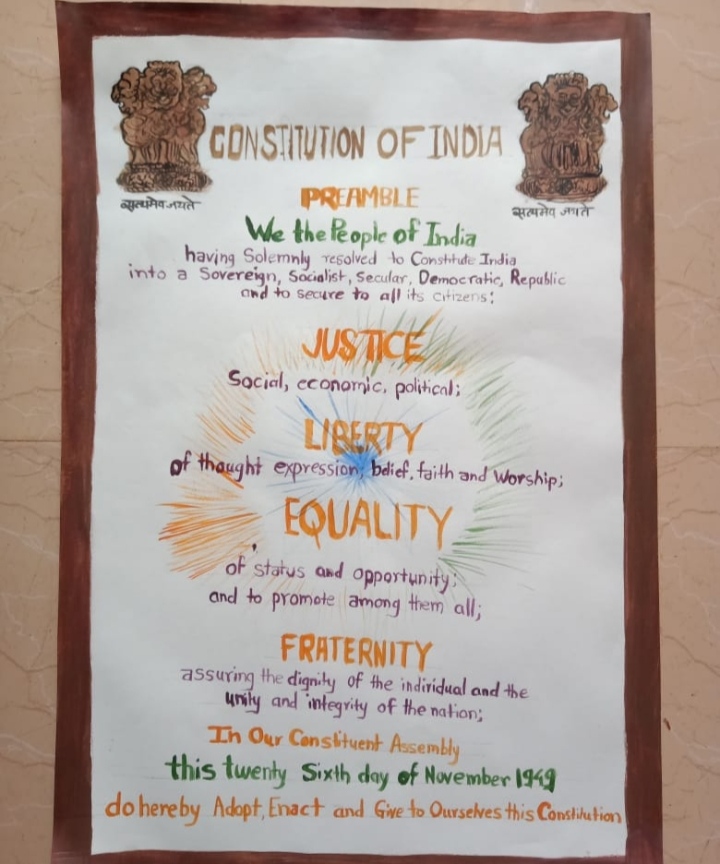 CONSTITUTION OF INDIA
सत्यमेव जयते
सत्यमेव जयते
PREAMBLE
We the People of India
having Solemnly resolved to Constitute India
into a Sovereign, Socialist, Secular, Democratic, Republic
and to secure to all its citizens:
JUSTICE
Social, economic, political;
LIBERTY
of thought expression, belief, faith and Worship;
EQUALITY
of status and opportunity;
and to promote among them all;
FRATERNITY
assuring the dignity of the individual and the
unity and integrity of the nation;
In Our Constituent Assembly
this twenty Sixth day of November 1949
do hereby Adopt, Enact and Give to Ourselves this Constitution